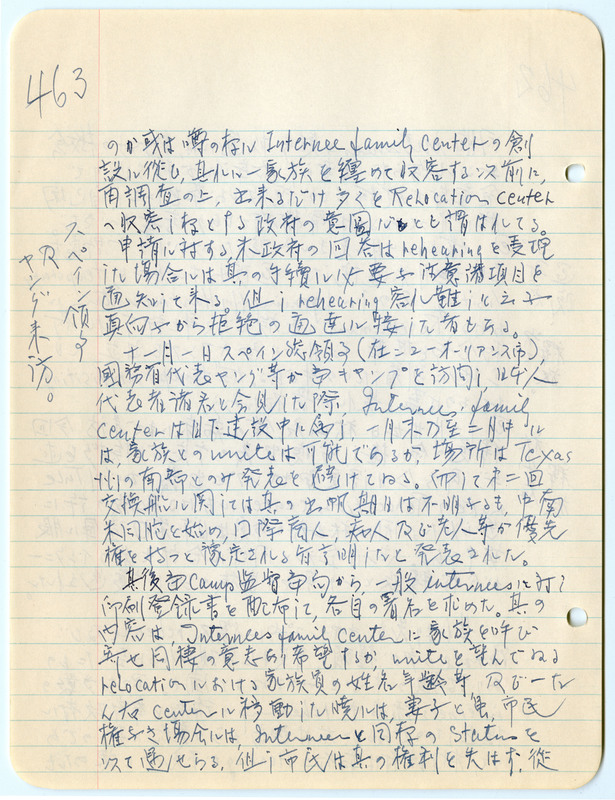 463
のか或は噂の様ル Internee family center の創
設ル従ひ、其れル一家族を纏めて収容する以前に、
再調査の上、出来るだけ多くを Relocation center
へ収容し様とする政府の意図だとも謂はれてる。
申請ル対する米政府の回答は rehearing を受理
した場合ルは其の手続ル必要な注意諸項目を
通知して来る。但し rehearing 容れ難しと云ふ
真向から拒絶の通達ル接した者もある。
スペイン領事
及
ヤング来訪。
十一月一日スペイン総領事(在ニューオーリアンス市)、
國務省代表ヤング等が当キャンプを訪問し、
代表者諸君と会見した際、Internees family
center は目下建設中に属し、一月末乃至二月中ルは
は、家族との unite は可能であるが、場所は Texas
州の南部とのみ発表を避けてゐる。而して第二回
交換船ル関しては其の出帆期日は不明なるも、中南
米同胞を始め、國際商人、病人及び老人等が優先
権を持つと予定される旨言明したと発表された。
其後当 Camp 監督当局から、一般 internees に対し
印刷登録書を配布して、各自の署名を求めた。其の
内容は、Internees family center に家族を呼び
寄せ同棲の意志あり希望するか unite を望んでゐる
relocation ルおける家族員の姓名年齢等、及び一た
ん右 center ル移動した暁ルは、妻子と虽、市民
権なき場合ルは、Internee と同様の status を
以て遇せらる、但し市民は其の権利を失はず、従